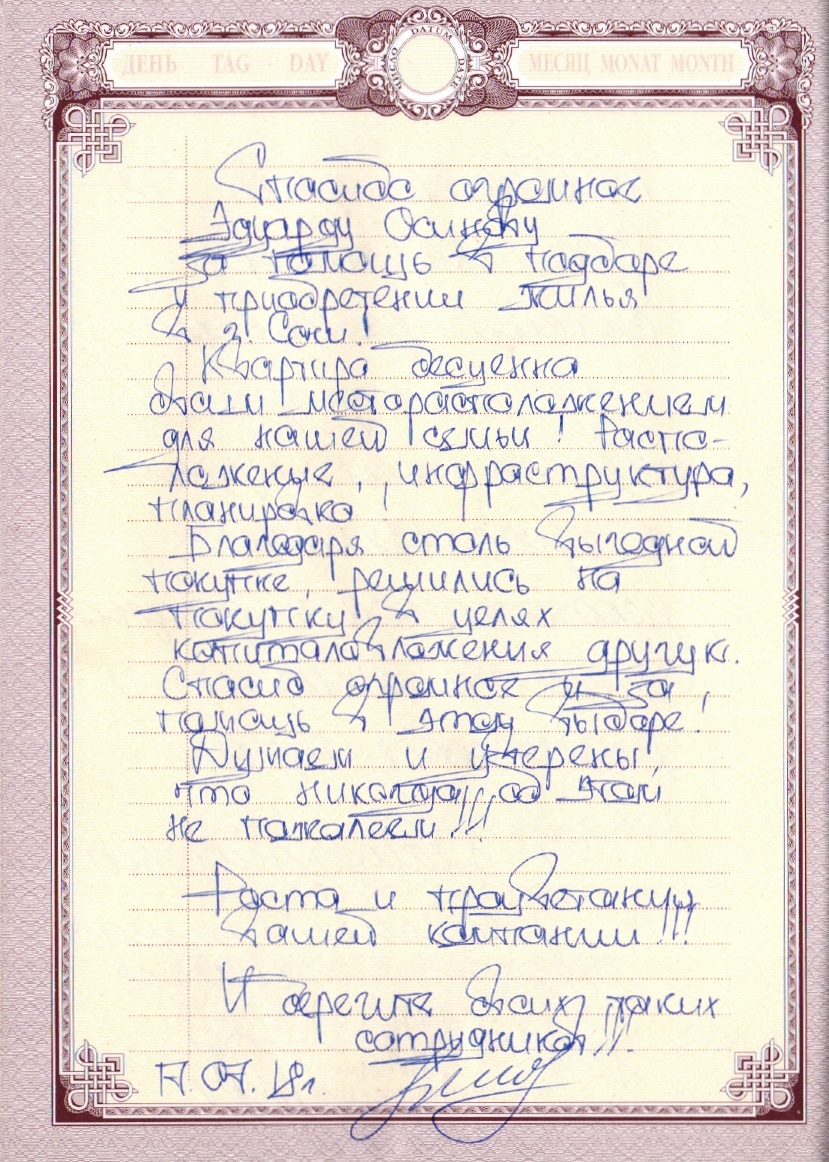 ДЕНЬ TAG DAY DATUM DATE ЧИСЛО МЕСЯЦ MONAT MONTH
Спасибо огромное
Эдуарду Осипову
за помощь в подборе
и приобретении жилья
в г. Сочи!
Квартира бесценна
своим месторасположением
для нашей семьи! Распо-
ложение, инфраструктура,
планировка!
Благодаря столь выгодной
покупке, решились на
покупку в целях
капиталовложения другую.
Спасибо огромное и за
помощь в этом выборе!
Думаем и уверены,
что никогда об этом
не пожалеем!!!
Роста и процветания
вашей компании!!!
И берегите своих таких
сотрудников!!!
17.07.18г.